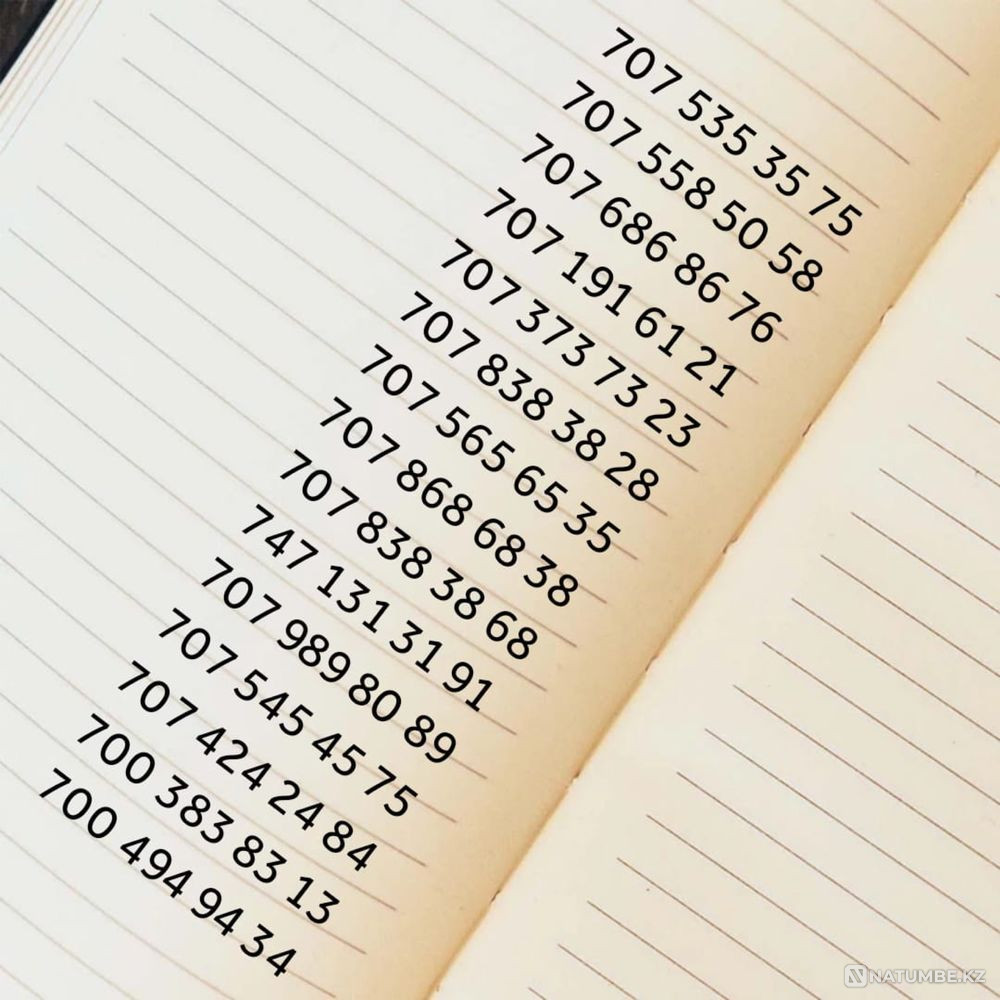 707 535 35 75
707 558 50 58
707 686 86 76
707 191 61 21
707 373 73 23
707 838 38 28
707 565 65 35
707 868 68 38
707 838 38 68
747 131 31 91
707 989 80 89
707 545 45 75
707 424 24 84
700 383 83 13
700 494 94 34
NATUMBE.KZ